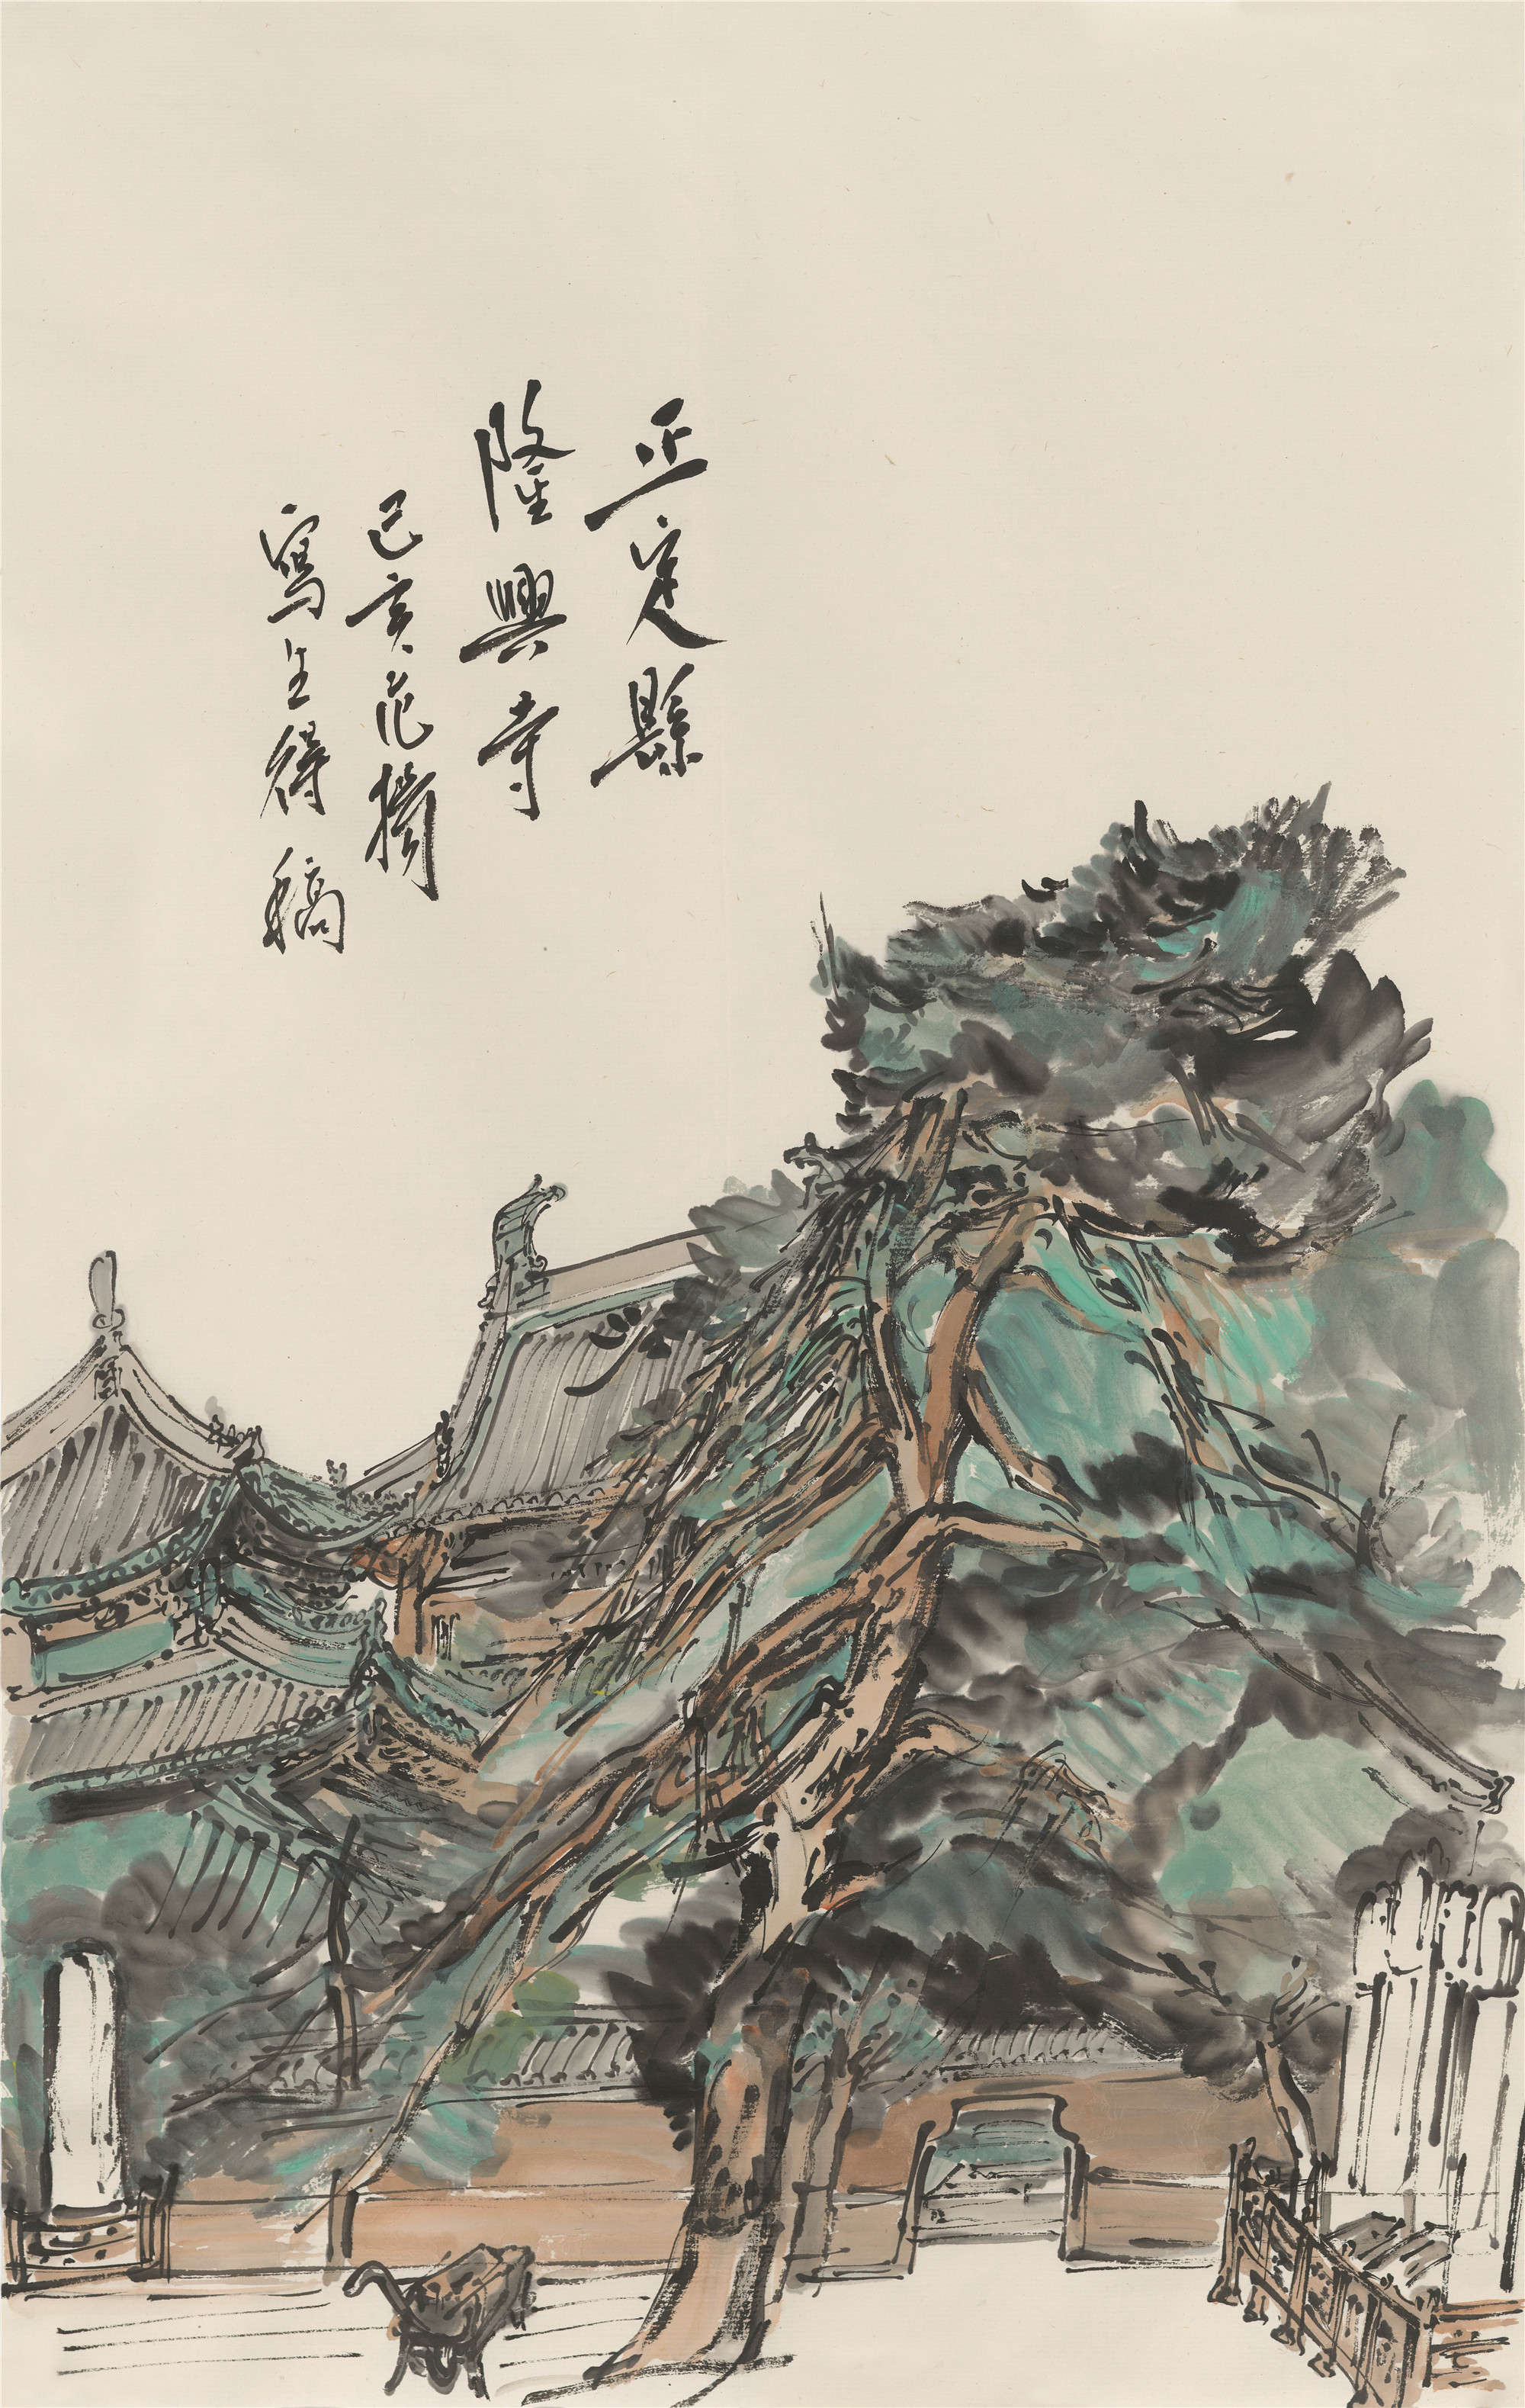 正定縣
隆興寺
己亥范揚
寫生得稿